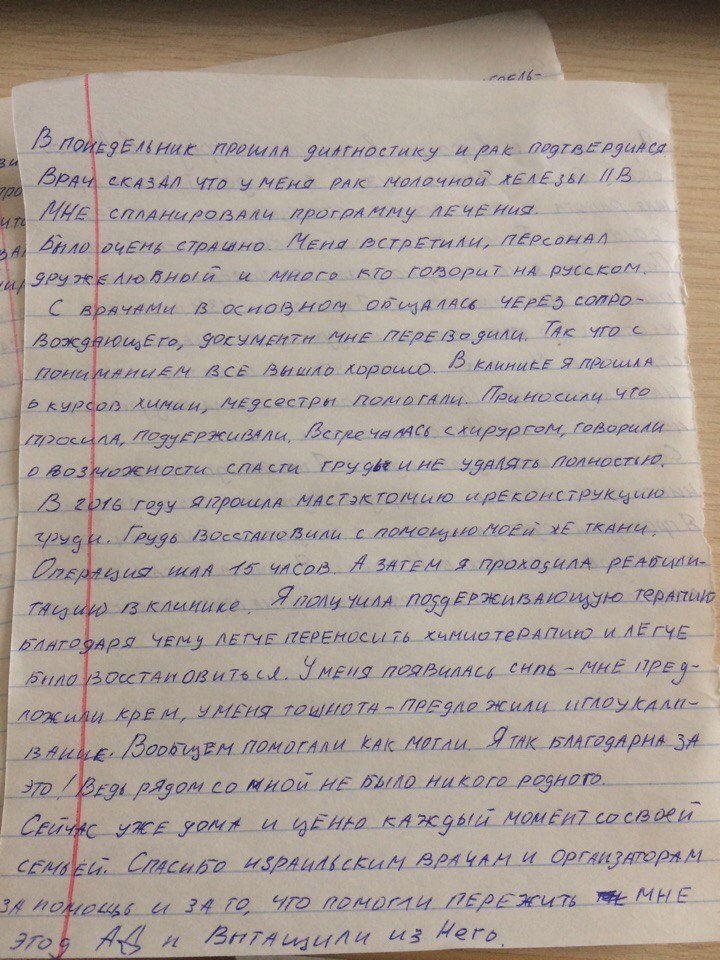 грель-
В понедельник прошла диагностику и рак подтвердился
Врач сказал что у меня рак молочной железы IIB
Мне спланировали программу лечения.
Было очень страшно. Меня встретили, персонал
дружелювный и много кто говорит на русском.
С врачами в основном общалась через сопро-
вождающего, документы мне переводили. Так что с
пониманием все вышло хорошо. В клинике я прошла
6 курсов химии, медсестры помогали. Приносили что
просила, поддерживали. Встречалась с хирургом, говорили
о возможности спасти грудь и не удалять полностью.
В 2016 году я прошла мастэктомию и реконструкцию
груди. Грудь восстановили с помощью моей же ткани.
Операция шла 15 часов. А затем я проходила реабили-
тацию в клинике. Я получила поддерживающую терапию
благодаря чему легче переносить химиотерапию и легче
было восстановиться. У меня появилась сыпь - мне пред-
ложили крем, у меня тошнота - предложили иглоукалы-
вание. Вообщем помогали как могли. Я так благодарна за
это! Ведь рядом со мной не было никого родного.
Сейчас уже дома и ценю каждый момент со своей
семьей. Спасибо израильским врачам и организаторам
за помощь и за то, что помогли пережить мне
этод АД и Вытащили из Него.